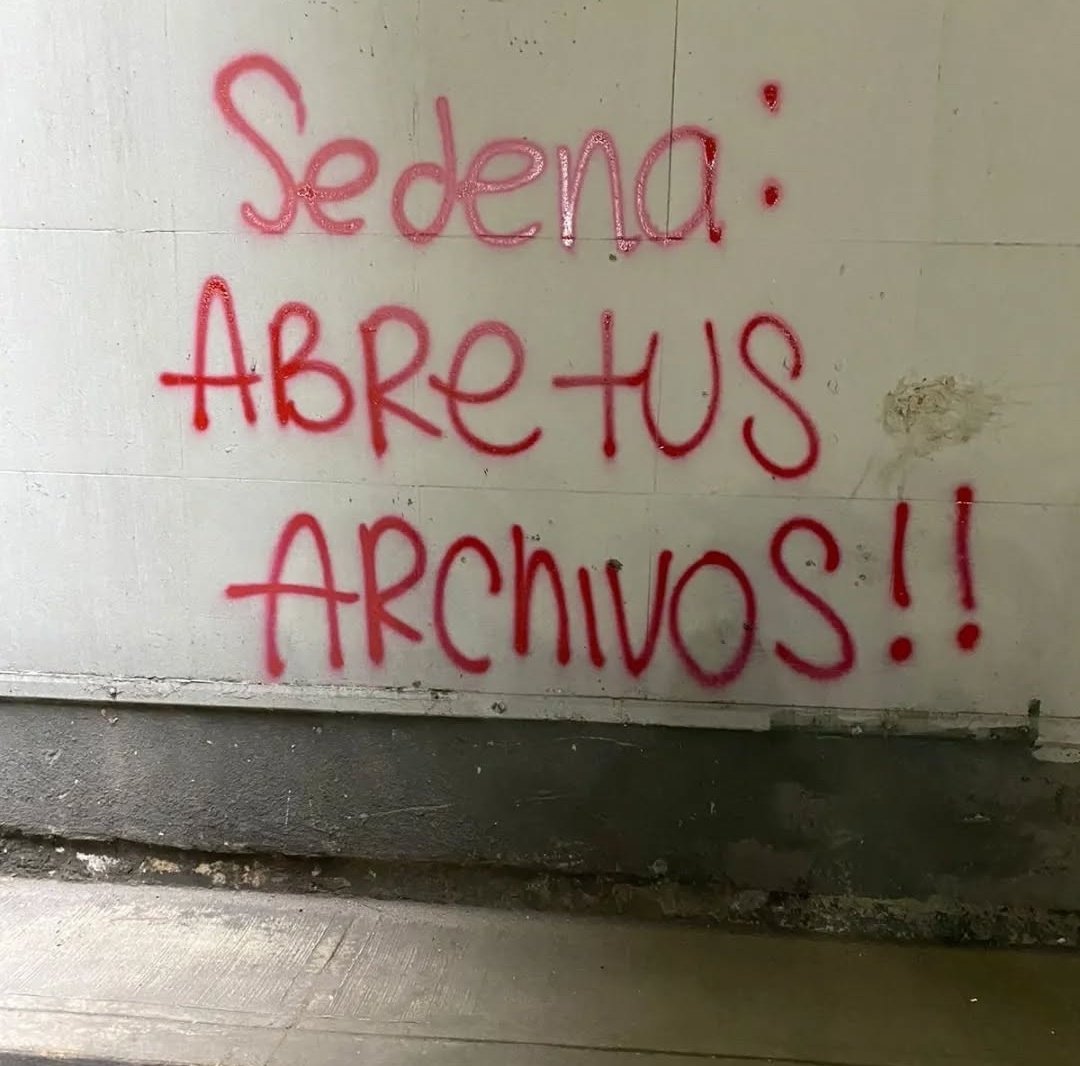 Sedena:
ABRe tus
ARChivos!!